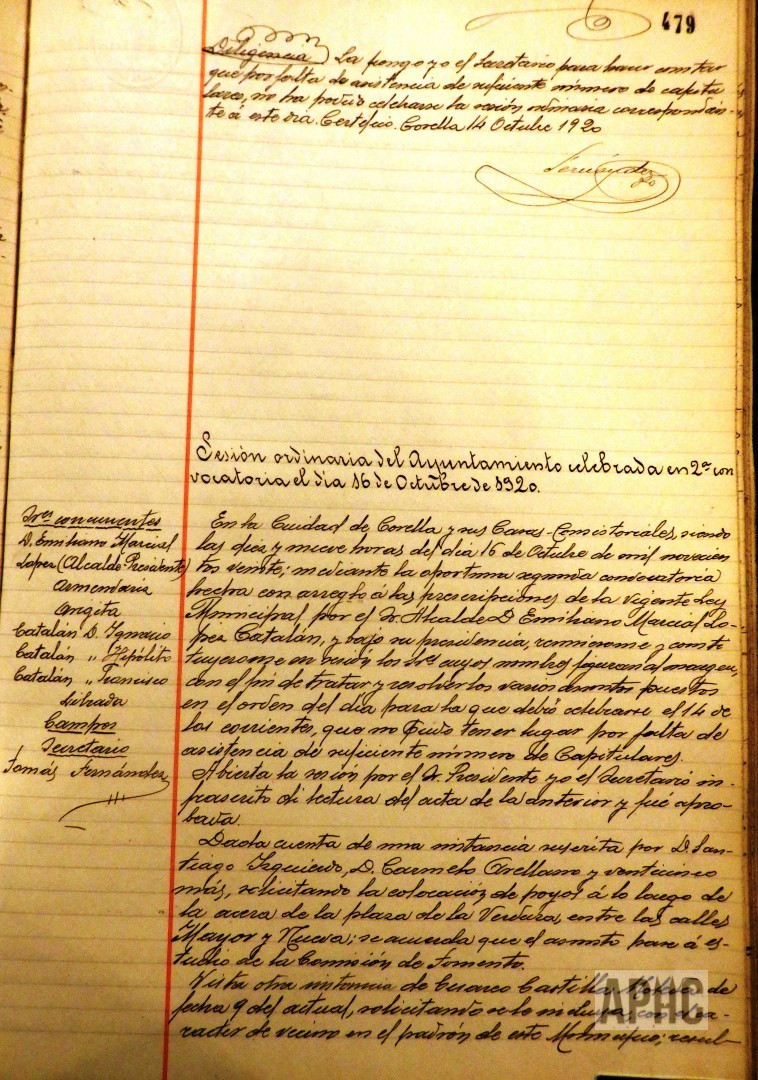 479
Diligencia La pongo yo el Secretario para hacer constar
que por falta de asistencia de suficiente número de capitu
lares, no ha podido celebrarse la sesión ordinaria correspondien-
te a este día. Certifico. Corella 14 Octubre 1920
Fernández
Sesión ordinaria del Ayuntamiento celebrada en 2ª con
vocatoria el día 16 de Octubre de 1920.
Sres concurrentes
D. Emiliano Marcial
Lopez (Alcalde Presidente)
Armendariz
Angita
Catalán D. Ignacio
Catalán " Hipólito
Catalán " Francisco
Librada
Campos
Secretario
Tomás Fernández
En la Ciudad de Corella y sus Casas-Consistoriales, siendo
las diez y nueve horas del día 16 de Octubre de mil novecien
tos veinte; mediante la oportuna segunda convocatoria
hecha con arreglo á las prescripciones de la vigente Ley
Municipal por el Sr. Alcalde D. Emiliano Marcial Lo-
pez Catalán, y bajo su presidencia, reuniéronse y consti
tuyeronse en sesión los Sres cuyos nombres figuran al margen,
con el fin de tratar y resolver los varios asuntos puestos
en el orden del día para la que debió celebrarse el 14 de
los corrientes, que no pudo tener lugar por falta de
asistencia de suficiente número de Capitulares.
Abierta la sesion por el Sr. Presidente yo el Secretario in-
frascrito di lectura del acta de la anterior y fué apro-
bada.
Dada cuenta de una instancia suscrita por D. San-
tiago Izquierdo, D. Carmelo Arellano y veinticinco
más, solicitando la colocación de poyos á lo largo de
la acera de la plaza de la Verdura, entre las calles
Mayor y Nueva; se acuerda que el asunto pase á es-
tudio de la Comisión de Fomento.
Vista otra instancia de Cesareo Castilla de
fecha 9 del actual, solicitando se le incluya con el ca-
racter de vecino en el padrón de este Municipio; resul-
APHC